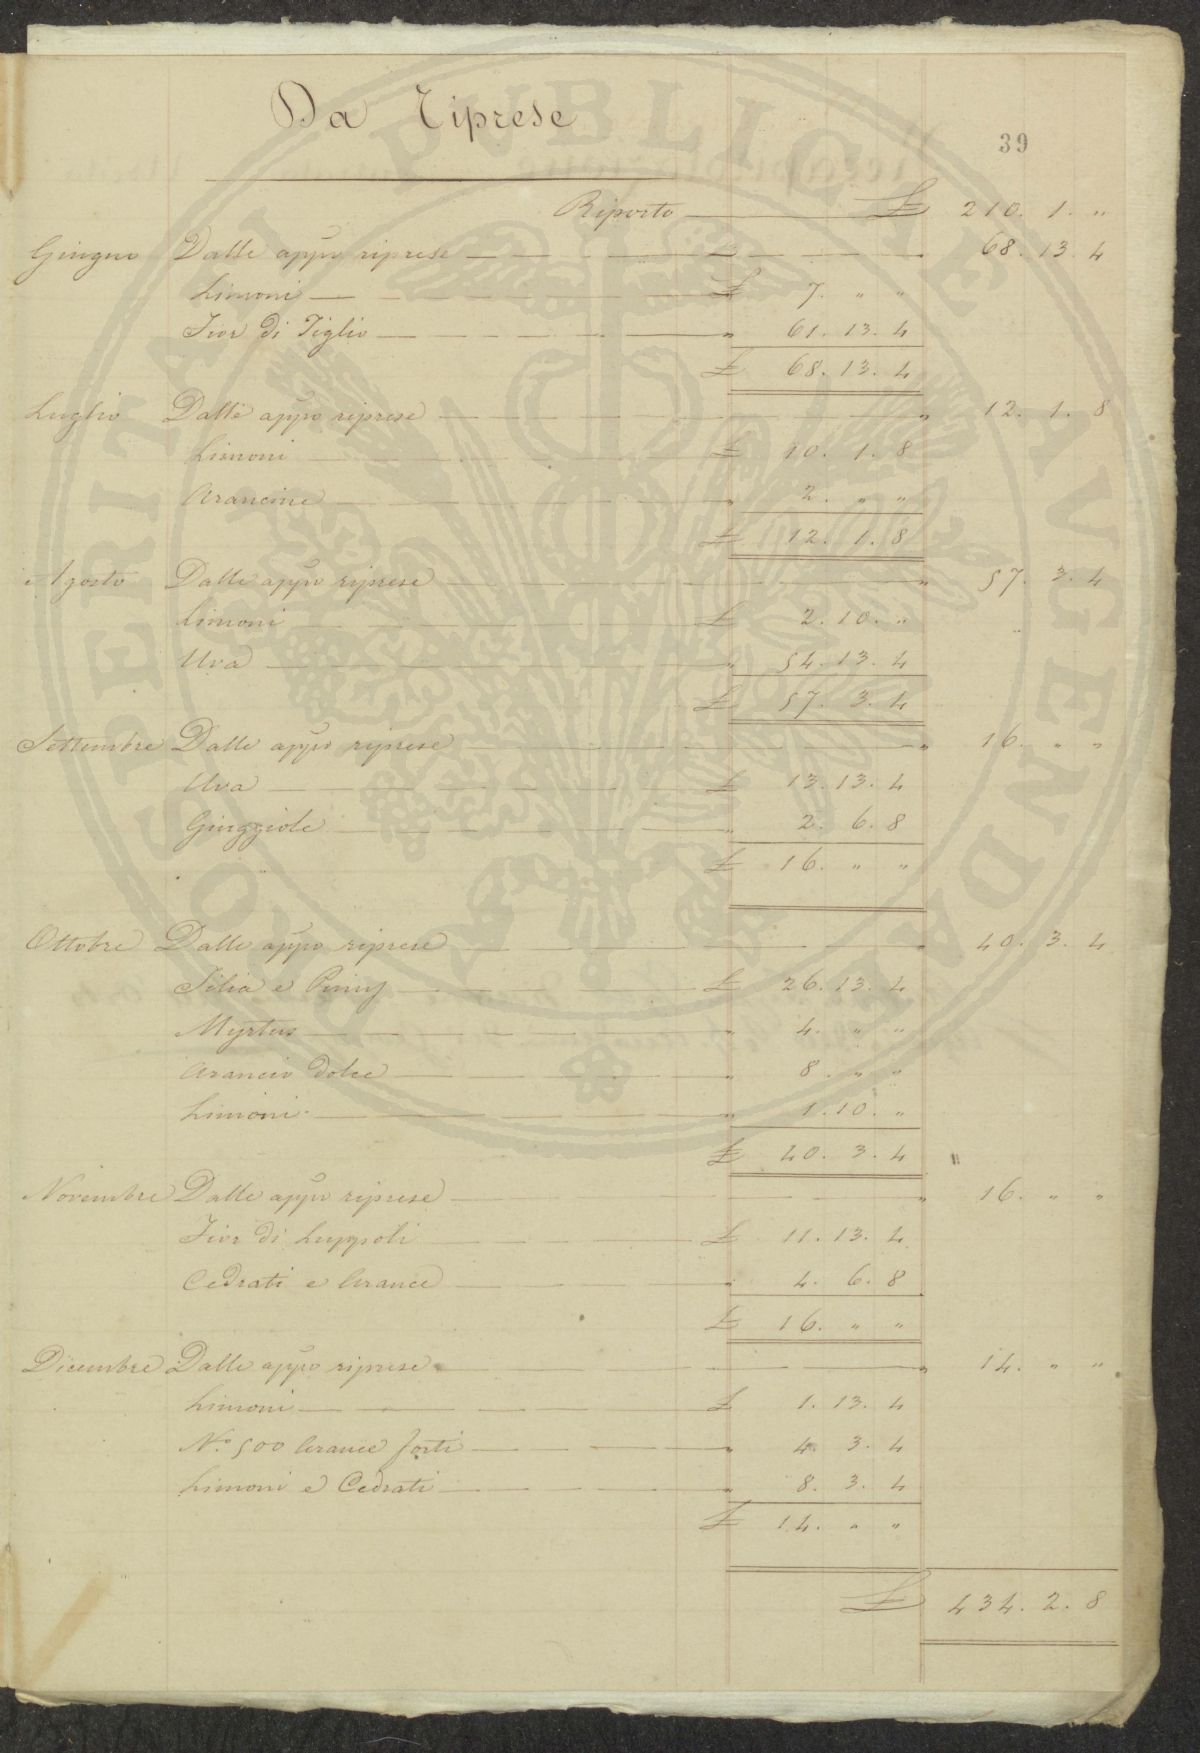 Da Riprese
39
Riporto £ 210. 1. "
Giugno Dalle appo riprese " 68. 13. 4
Limoni £ 7. " "
Fior di Tiglio " 61. 13. 4
£ 68. 13. 4
Luglio Dalle appo riprese " 12. 1. 8
Limoni £ 10. 1. 8
Arancine " 2. " "
£ 12. 1. 8
Agosto Dalle appo riprese " 57. 3. 4
Limoni £ 2. 10. "
Uva " 54. 13. 4
£ 57. 3. 4
Settembre Dalle appo riprese " 16. " "
Uva £ 13. 13. 4
Giuggiole " 2. 6. 8
£ 16. " "
Ottobre Dalle appo riprese " 40. 3. 4
Silia e £ 26. 13. 4
Myrtus " 4. " "
Arancio dolce " 8. " "
Limoni " 1. 10. "
£ 40. 3. 4
Novembre Dalle appo riprese " 16. " "
Fior di Luppoli £ 11. 13. 4
Cedrati e Arance " 4. 6. 8
£ 16. " "
Dicembre Dalle appo riprese " 14. " "
Limoni £ 1. 13. 4
N.° 500 Arance forti " 4. 3. 4
Limoni e Cedrati " 8. 3. 4
£ 14. " "
£ 434. 2. 8
PROSPERITATI PVBLICAE AVGENDAE